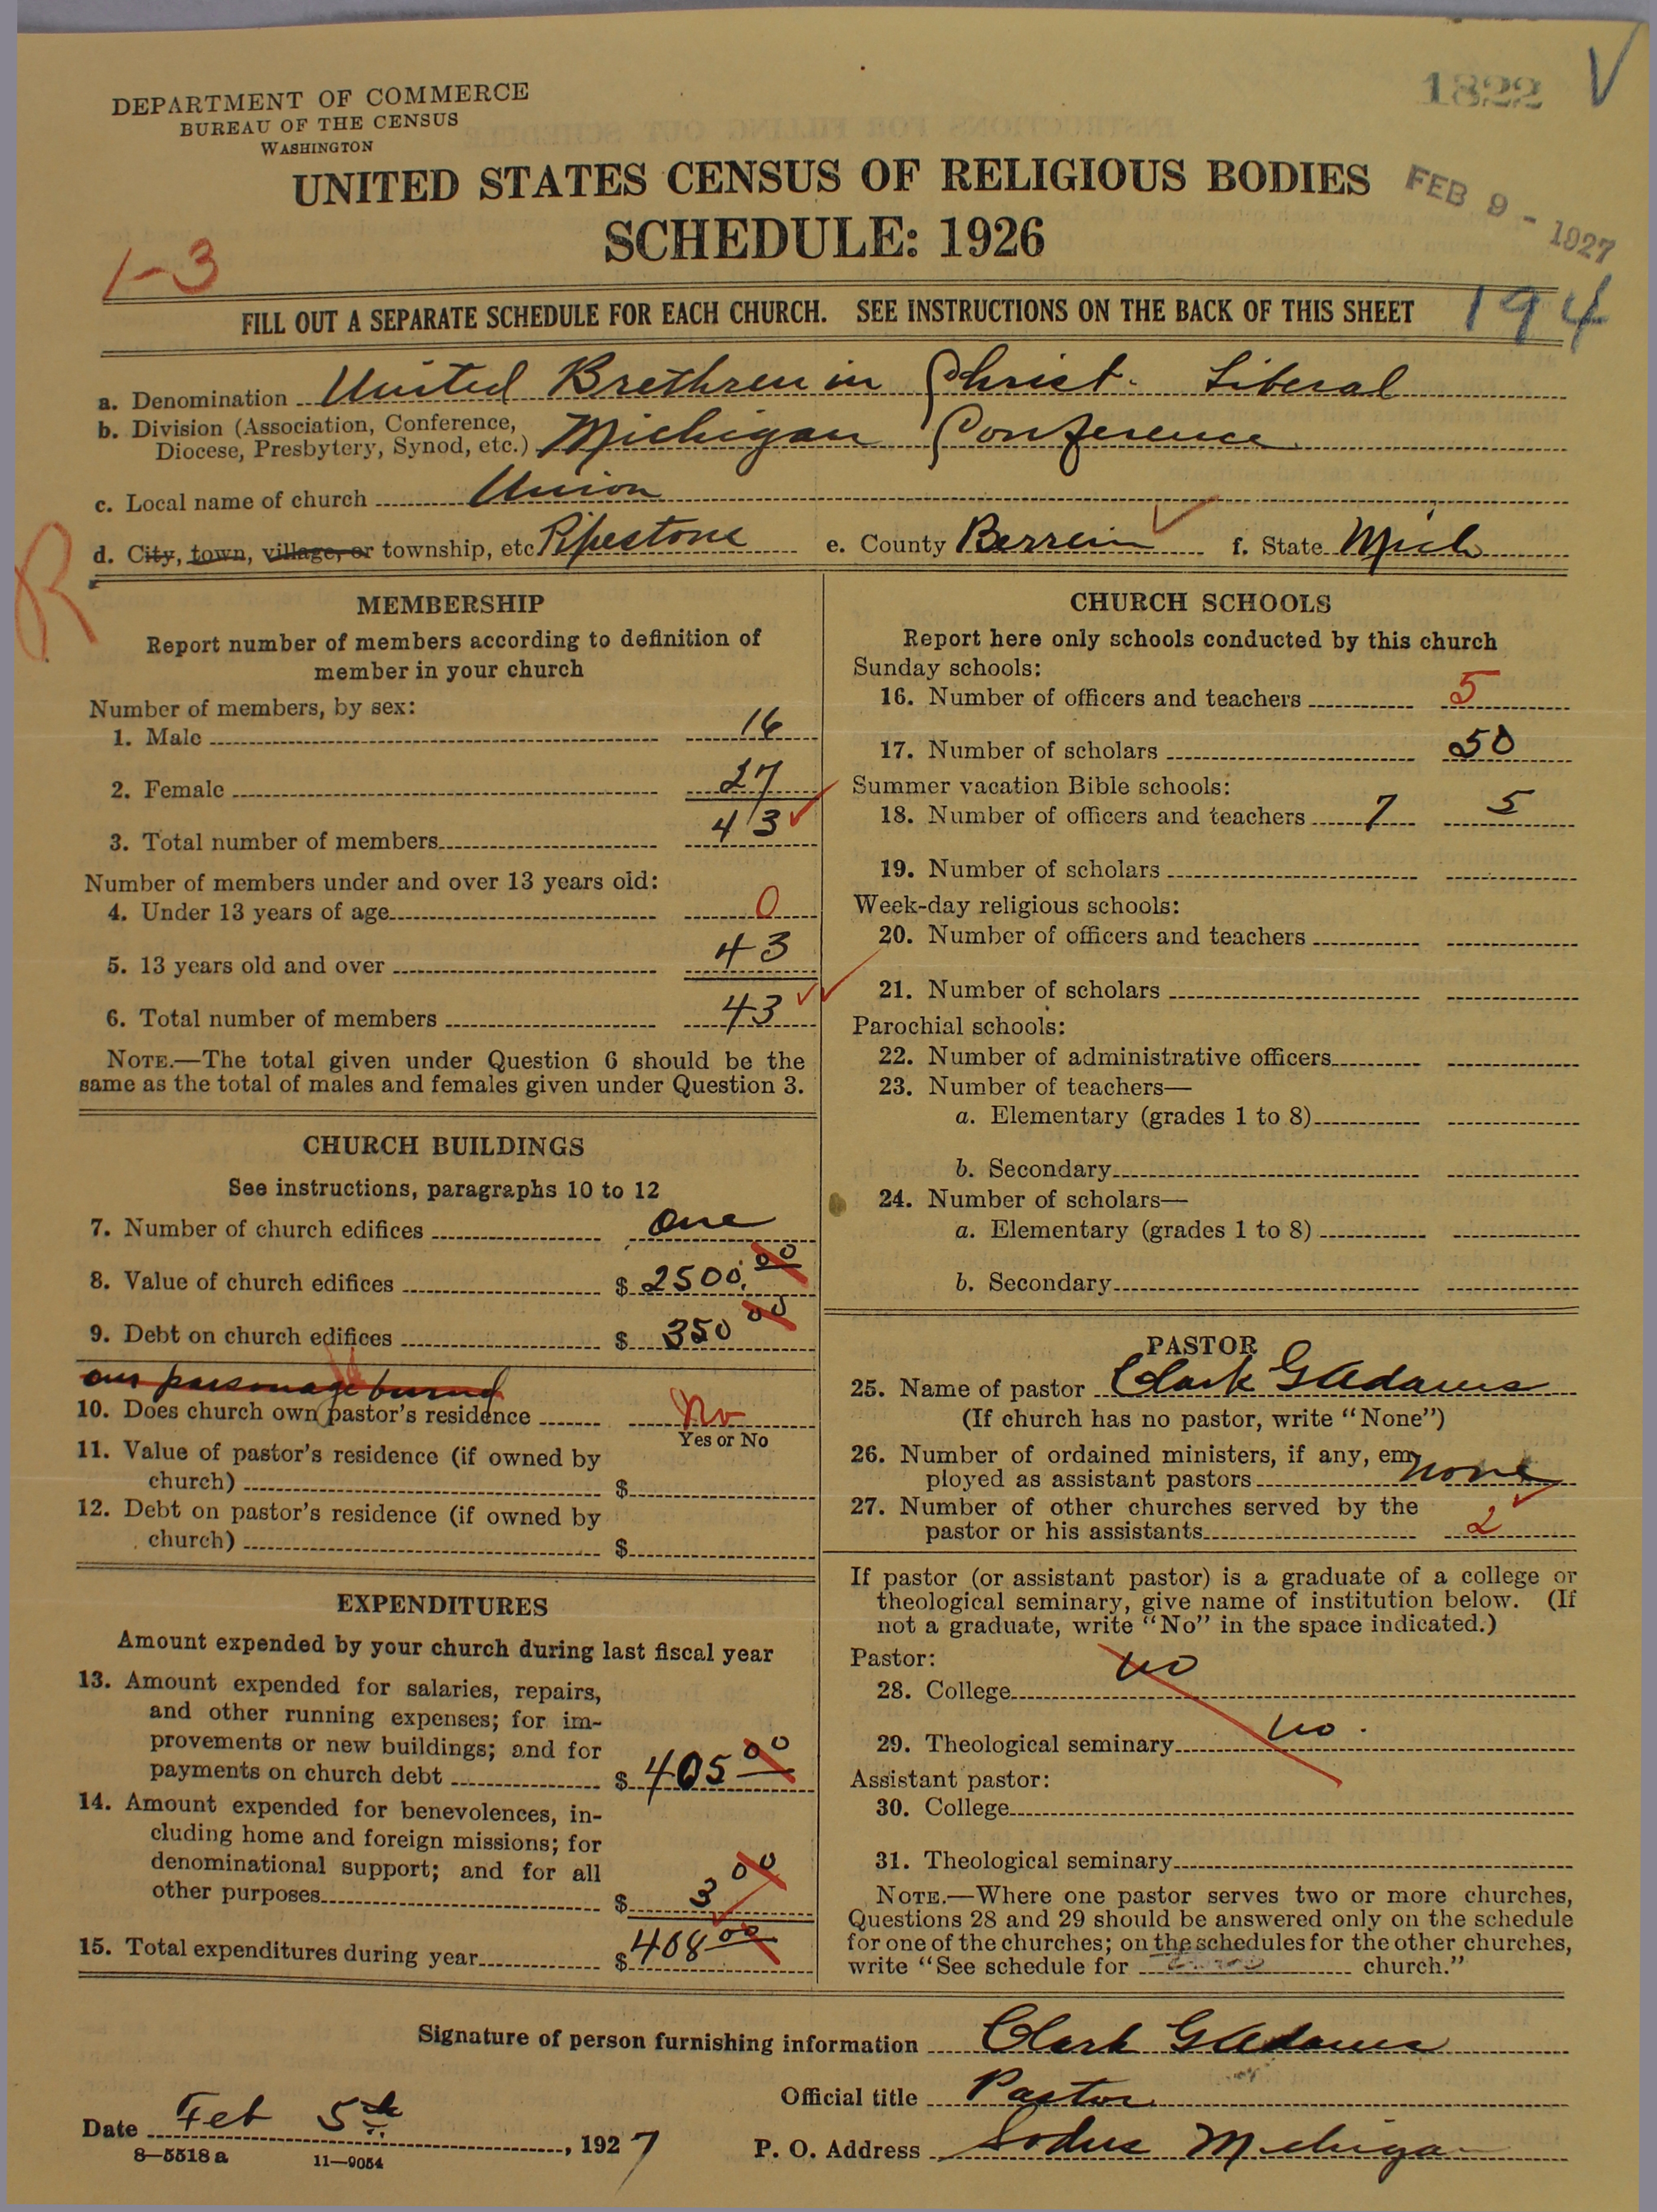 1822 V
DEPARTMENT OF COMMERCE
BUREAU OF THE CENSUS
WASHINGTON
UNITED STATES CENSUS OF RELIGIOUS BODIES
FEB 9 - 1927
SCHEDULE: 1926
1-3
194
FILL OUT A SEPARATE SCHEDULE FOR EACH CHURCH. SEE INSTRUCTIONS ON THE BACK OF THIS SHEET
a. Denomination United Brethren in Christ. Liberal
b. Division (Association, Conference,
Diocese, Presbytery, Synod, etc.) Michigan Conference
c. Local name of church Union
R
d. City, town, village, or township, etc Pipestone e. County Berrein f. State Mich
MEMBERSHIP
Report number of members according to definition of
member in your church
Number of members, by sex:
1. Male 16
2. Female 27
3. Total number of members 43
Number of members under and over 13 years old:
4. Under 13 years of age 0
5. 13 years old and over 43
6. Total number of members 43
NOTE.—The total given under Question 6 should be the
same as the total of males and females given under Question 3.
CHURCH BUILDINGS
See instructions, paragraphs 10 to 12
7. Number of church edifices One
8. Value of church edifices $ 2500.00
9. Debt on church edifices $ 350 00
our parsonage burned
10. Does church own pastor's residence No
Yes or No
11. Value of pastor's residence (if owned by
church) $
12. Debt on pastor's residence (if owned by
church) $
EXPENDITURES
Amount expended by your church during last fiscal year
13. Amount expended for salaries, repairs,
and other running expenses; for im-
provements or new buildings; and for
payments on church debt $ 405 00
14. Amount expended for benevolences, in-
cluding home and foreign missions; for
denominational support; and for all
other purposes $ 3 00
15. Total expenditures during year $ 408 00
CHURCH SCHOOLS
Report here only schools conducted by this church
Sunday schools:
16. Number of officers and teachers 5
17. Number of scholars 50
Summer vacation Bible schools:
18. Number of officers and teachers 7 5
19. Number of scholars
Week-day religious schools:
20. Number of officers and teachers
21. Number of scholars
Parochial schools:
22. Number of administrative officers
23. Number of teachers—
a. Elementary (grades 1 to 8)
b. Secondary
24. Number of scholars—
a. Elementary (grades 1 to 8)
b. Secondary
PASTOR
25. Name of pastor Clark G Adams
(If church has no pastor, write "None")
26. Number of ordained ministers, if any, em-
ployed as assistant pastors none
27. Number of other churches served by the
pastor or his assistants 2
If pastor (or assistant pastor) is a graduate of a college or
theological seminary, give name of institution below. (If
not a graduate, write "No" in the space indicated.)
Pastor:
28. College no
29. Theological seminary no.
Assistant pastor:
30. College
31. Theological seminary
NOTE.—Where one pastor serves two or more churches,
Questions 28 and 29 should be answered only on the schedule
for one of the churches; on the schedules for the other churches,
write "See schedule for church."
Signature of person furnishing information Clark G Adams
Official title Pastor
Date Feb 5th, 1927
P. O. Address Sodus Michigan
8—5518 a 11—9054